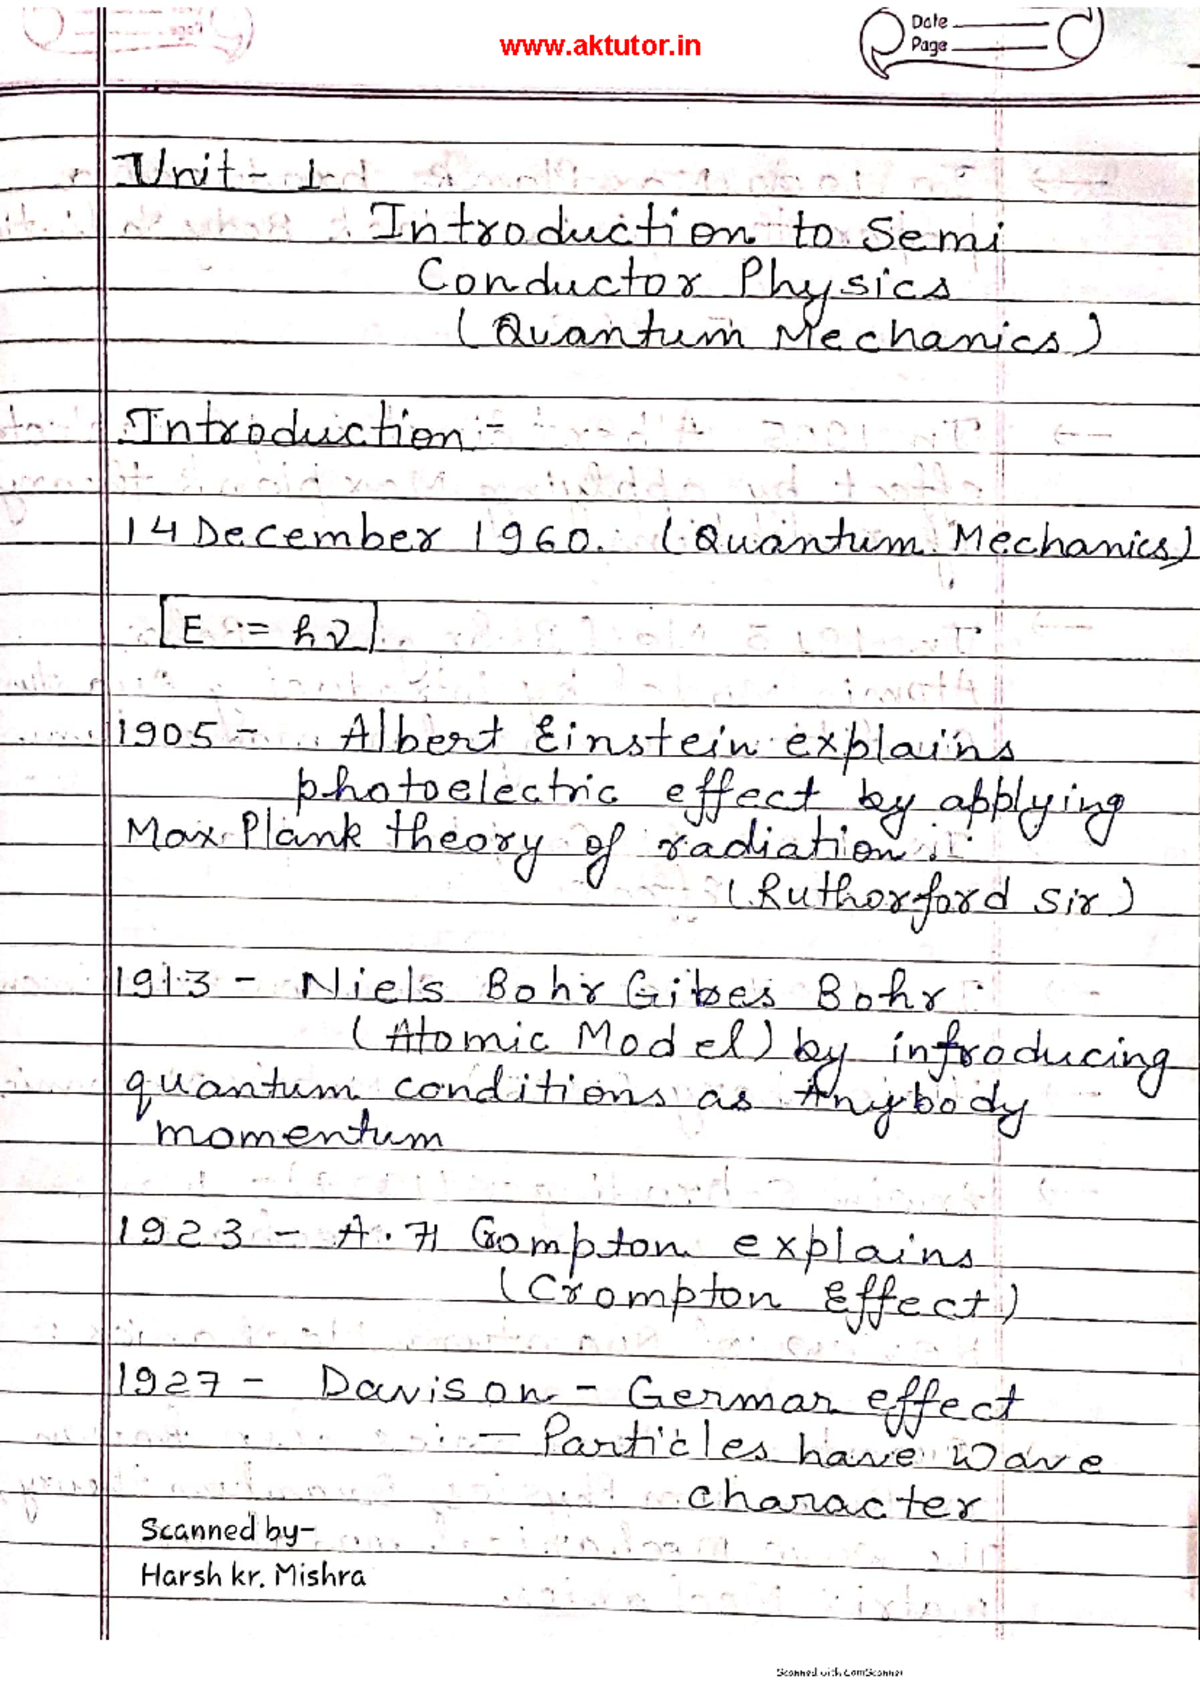 www.aktutor.in
Date
Page
Unit - I
Introduction to Semi
Conductor Physics
(Quantum Mechanics)
Introduction :-
14 December 1960. (Quantum Mechanics)
E = hν
1905 - Albert Einstein explains
photoelectric effect by applying
Max Plank theory of radiation
(Ruthorford Sir)
1913 - Niels Bohr Gibes Bohr
(Atomic Model) by introducing
quantum conditions as Anybody
momentum
1923 - A. H Gompton explains
(Crompton Effect)
1927 - Davison - Germar effect
- Particles have wave
character
Scanned by-
Harsh kr. Mishra
Scanned with CamScanner